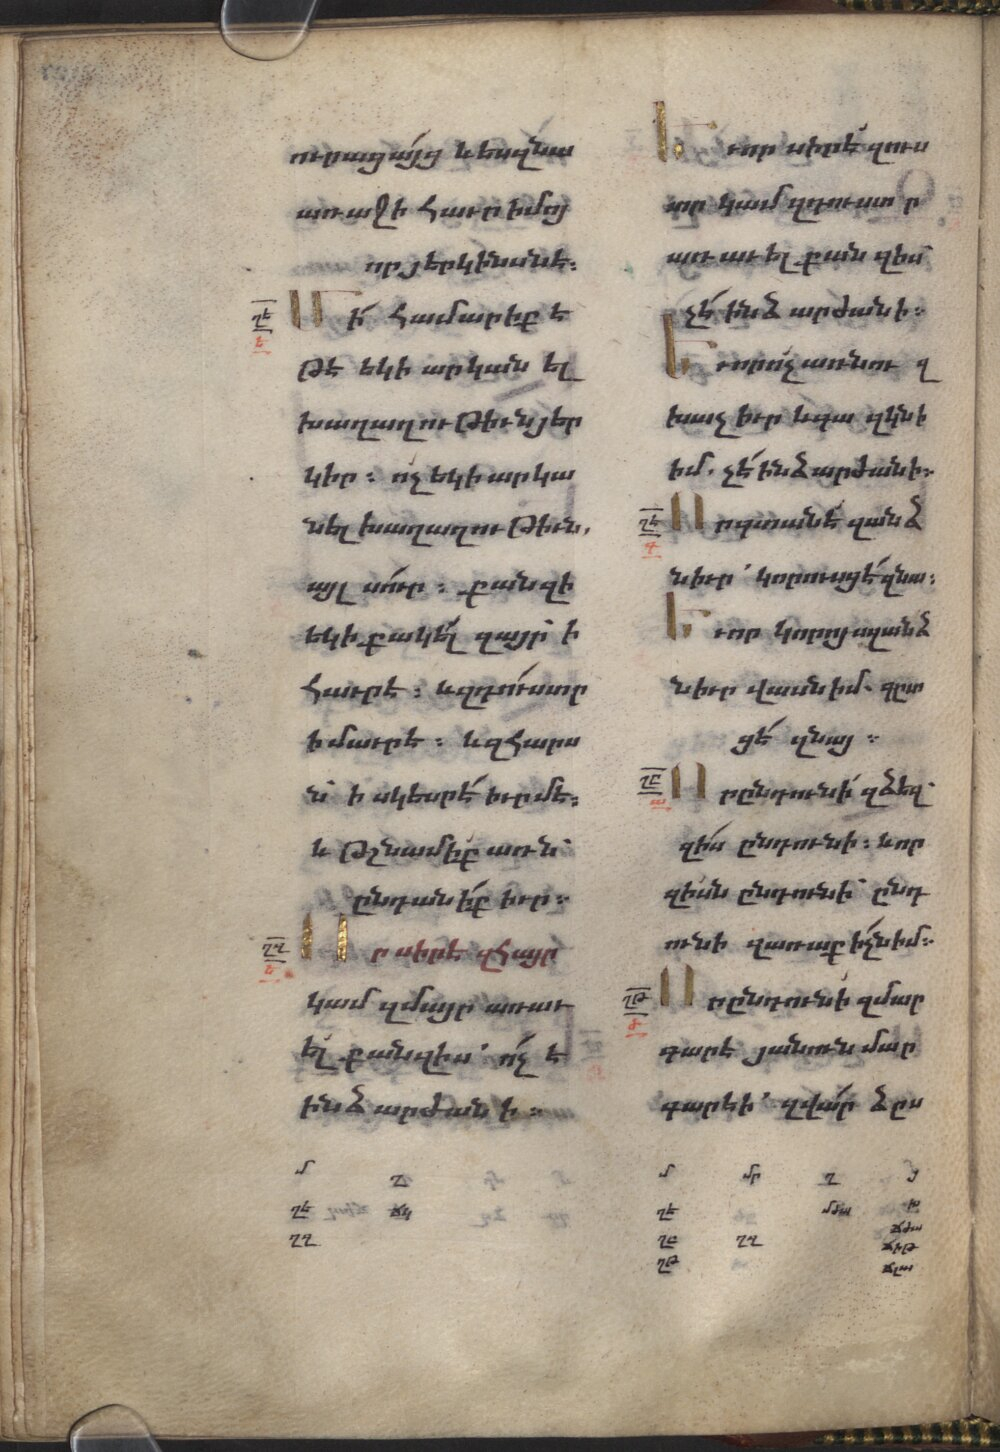 ուրացայց և ես զնա
առաջի հաւր իմոյ
որ յերկինսն է։
ՂԵ
Ե
Մի համարիք ե
թէ եկի արկանել
խաղաղութիւն յեր
կիր։ ոչ եկի արկա
նել խաղաղութիւն,
այլ սուր։ քանզի
եկի քակել զայր ի
հաւրէ։ և զդուստր
ի մաւրէ։ և զհարս
ն ի սկեսրէ իւրմէ։
և թշնամիք առն
ընդանիք իւր։
ՂԶ
Ե
Որ սիրէ զհայր
կամ զմայր առաւ
ել քան զիս՝ ոչ է
ինձ արժանի։
Մ
Ղ
ՂԵ
ՃԿ
ՂԶ
Եւ որ սիրէ զուս
տր կամ զդուստր
առաւել քան զիս՝
չէ ինձ արժանի։
Եւ որ ոչ առնու զ
խաչ իւր և գա զկնի
իմ. չէ ինձ արժանի։
ՂԷ
Գ
Որ գտանէ զանձ
ն իւր՝ կորուսցէ զնա։
Եւ որ կորոյս զանձ
ն իւր վասն իմ. գըտ
ցէ զնայ։
ՂԸ
Ա
Որ ընդունի զձեզ՝
զիս ընդունի։ և որ
զիսն ընդունի՝ ընդ
ունի զառաքիչն իմ։
ՂԹ
Ժ
Որ ընդունի զմար
գարէ յանուն մար
գարէի՝ զվարձ ըս
Մ
Մր
Ղ
Յ
ՂԷ
ՂԸ
ՂԶ
ՃԻԹ
ՂԹ